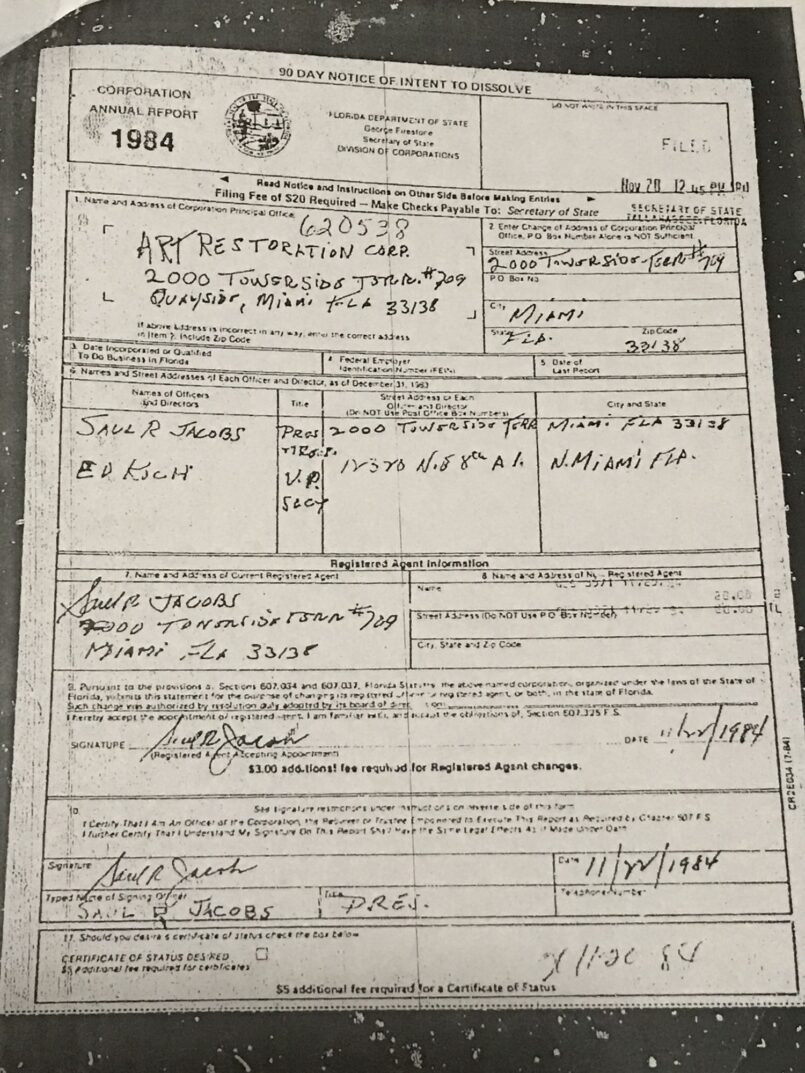 90 DAY NOTICE OF INTENT TO DISSOLVE
CORPORATION
ANNUAL REPORT
1984
FLORIDA DEPARTMENT OF STATE
George Firestone
Secretary of State
DIVISION OF CORPORATIONS
DO NOT WRITE IN THIS SPACE
FILED
Nov 28 12 45 PM
SECRETARY OF STATE
TALLAHASSEE, FLORIDA
Read Notice and Instructions on Other Side Before Making Entries
Filing Fee of $20 Required — Make Checks Payable To: Secretary of State
1. Name and Address of Corporation Principal Office
620538
ART RESTORATION CORP.
2000 TOWERSIDE TERR. #709
QUAYSIDE, MIAMI FLA 33138
If above address is incorrect in any way, enter the correct address
in Item 2. Include Zip Code
2. Enter Change of Address of Corporation Principal
Office, P.O. Box Number Alone is NOT Sufficient
Street Address
2000 TOWERSIDE TERR #709
P.O. Box No
City
MIAMI
State
FLA.
Zip Code
33138
3. Date Incorporated or Qualified
To Do Business in Florida
4. Federal Employer
Identification Number (FEIN)
5. Date of
Last Report
6. Names and Street Addresses of Each Officer and Director, as of December 31, 1983
Names of Officers
and Directors
Title
Street Address of Each
Officer and Director
(Do NOT Use Post Office Box Numbers)
City and State
SAUL R JACOBS
PRES
2000 TOWERSIDE TERR
MIAMI FLA 33138
ED
V.P.
SECY
N. MIAMI FLA.
Registered Agent Information
7. Name and Address of Current Registered Agent
Saul R JACOBS
2000 TOWERSIDE TERR #709
MIAMI FLA 33138
8. Name and Address of New Registered Agent
Name
Street Address (Do NOT Use P.O. Box Number)
City, State and Zip Code
20.00
20.00
9. Pursuant to the provisions of Sections 607.034 and 607.037, Florida Statutes, the above named corporation, organized under the laws of the State of
Florida, submits this statement for the purpose of changing its registered office or registered agent, or both, in the state of Florida.
Such change was authorized by resolution duly adopted by its board of directors
I hereby accept the appointment of registered agent. I am familiar with, and accept the obligations of, Section 607.325 F.S.
SIGNATURE Saul R Jacobs
(Registered Agent Accepting Appointment)
DATE 11/22/1984
$3.00 additional fee required for Registered Agent changes.
CR2E034 (7-84)
10.
See signature restrictions under instructions on reverse side of this form
I Certify That I Am An Officer of the Corporation, the Receiver or Trustee Empowered to Execute This Report as Required by Chapter 607 F S
I Further Certify That I Understand My Signature On This Report Shall Have the Same Legal Effects As If Made Under Oath
Signature
Saul R Jacobs
Date
11/22/1984
Typed Name of Signing Officer
SAUL R JACOBS
Title
PRES.
Telephone Number
11. Should you desire a certificate of status check the box below
CERTIFICATE OF STATUS DESIRED
$5 additional fee required for certificates
$5 additional fee required for a Certificate of Status